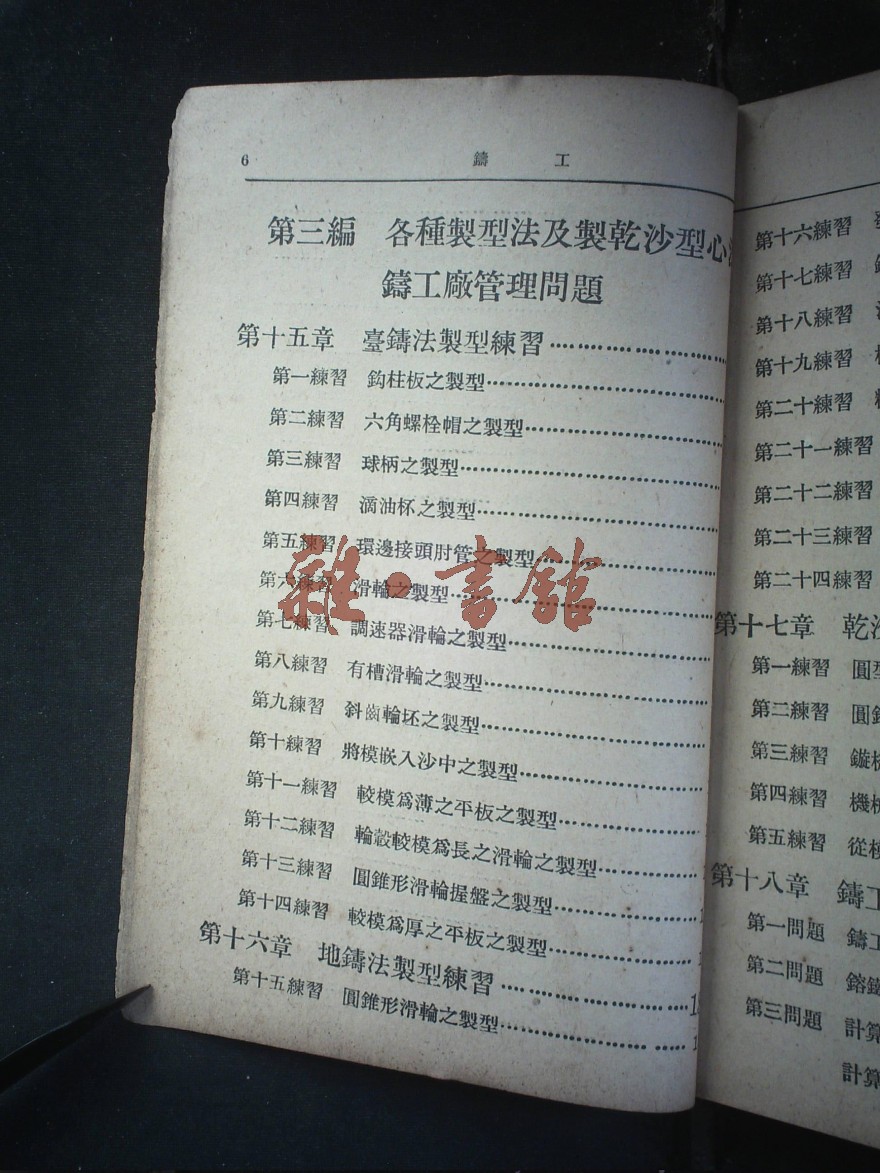 6 鑄工
第三編 各種製型法及製乾沙型心
鑄工廠管理問題
第十五章 臺鑄法製型練習
第一練習 鈎柱板之製型
第二練習 六角螺栓帽之製型
第三練習 球柄之製型
第四練習 滴油杯之製型
第五練習 環邊接頭肘管之製型
第六練習 滑輪之製型
第七練習 調速器滑輪之製型
第八練習 有槽滑輪之製型
第九練習 斜齒輪坯之製型
第十練習 將模嵌入沙中之製型
第十一練習 較模爲薄之平板之製型
第十二練習 輪轂較模爲長之滑輪之製型
第十三練習 圓錐形滑輪握盤之製型
第十四練習 較模爲厚之平板之製型
第十六章 地鑄法製型練習
第十五練習 圓錐形滑輪之製型
雜·書館
第十六練習
第十七練習
第十八練習
第十九練習
第二十練習
第二十一練習
第二十二練習
第二十三練習
第二十四練習
第十七章 乾
第一練習 圓
第二練習 圓
第三練習
第四練習 機
第五練習 從
第十八章 鑄
第一問題 鑄
第二問題 鎔
第三問題 計算
計算